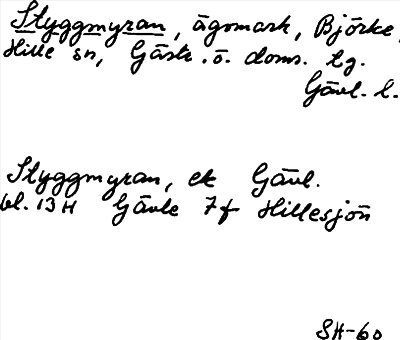 Styggmyran, ägomark, Björke,
Hille sn, Gästr. ö. doms. tg.
Gävl. l.
Styggmyran, ek Gävl.
bl. 13 H Gävle 7f Hillesjön
SH-60